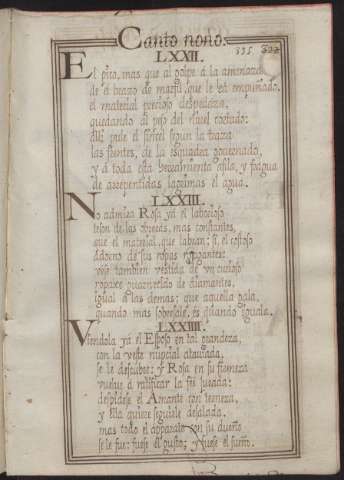 Canto nono.
335
LXXII.
El pico, mas que al golpe a la amenaza
de el brazo de marfil, que le ha empuñado,
el material precioso despedaza,
quedando al peso del nivel cortado:
Allí pule el sincel segun la traza
las frentes, de la esquadra gouernado,
y a toda esta herramienta afila, y fragua
de arrepentidas lagrimas el agua.
LXXIII.
No admira Rosa ya el laborioso
teson de las obreras, mas constantes,
que el material, que labran: si, el costoso
adorno de sus ropas rozagantes:
vese tambien vestida de vn curioso
ropaxe guarnecido de diamantes,
igual a las demas; que aquella gala,
quando mas sobresale, es quando iguala.
LXXIIII.
Viendola ya el Esposo en tal grandeza,
con la veste nupcial atauiada,
se le descubre; y Rosa en su fineza
vuelue a ratificar la fee jurada:
despidese el Amante con terneza,
y Ella quiere seguirle desalada,
mas todo el apparato con su dueño
se le fue: fuese el gusto; y fuese el sueño.